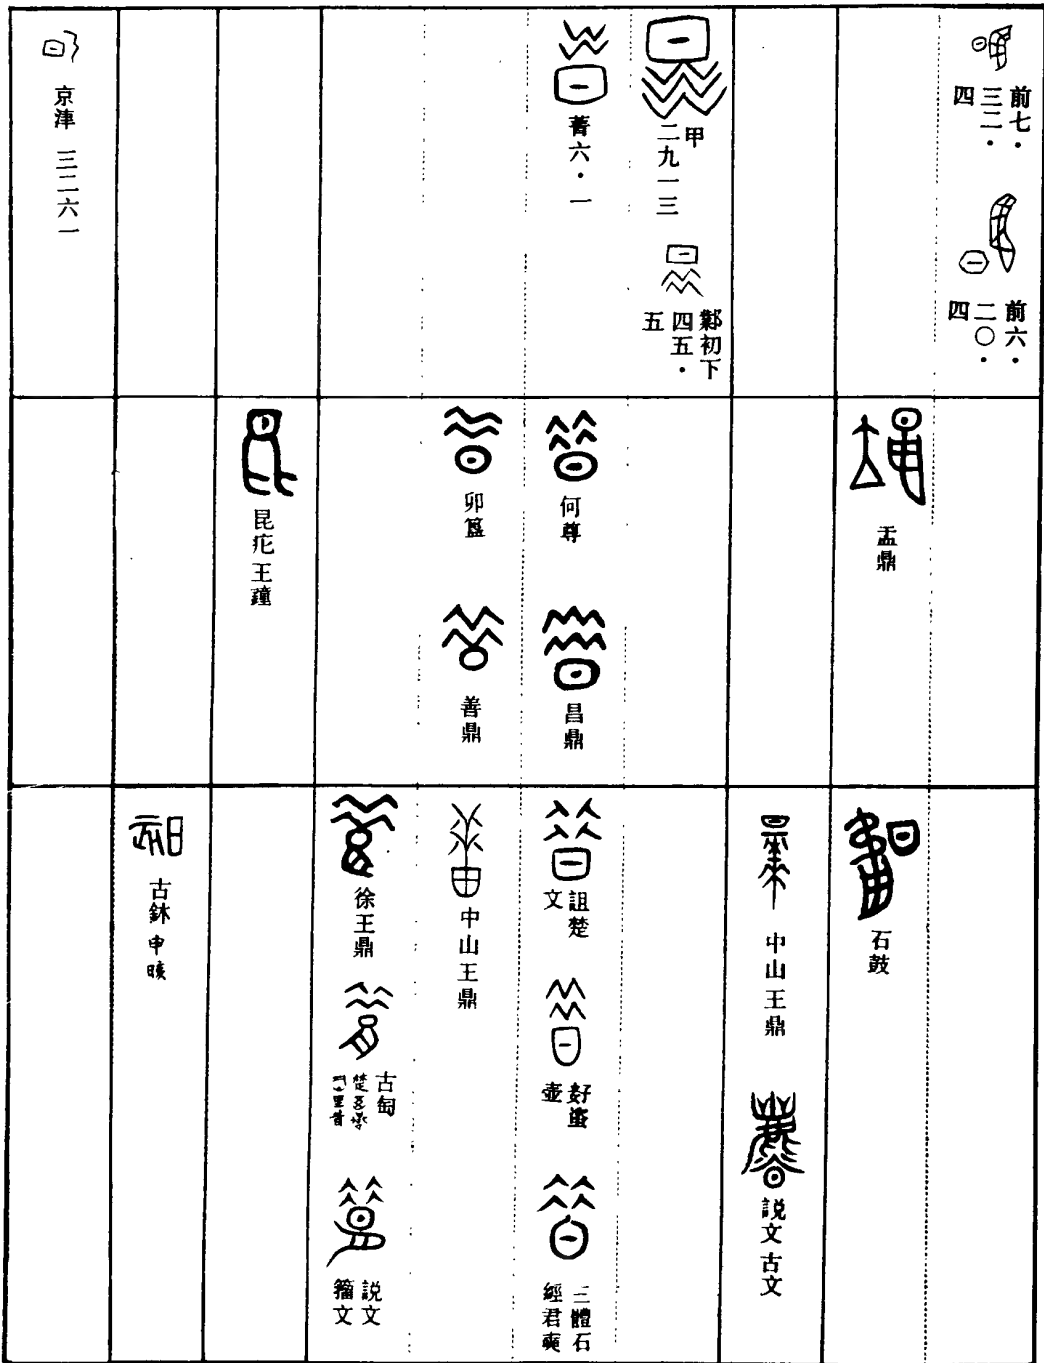 前七・
三二・
四
前六・
二〇・
四
甲
二九一三
鄴初下
四五・
五
菁六・一
京津 三二六一
盂鼎
何尊
昌鼎
卯簋
善鼎
昆疕王鐘
石鼓
中山王鼎
説文古文
詛楚
文
好蚉
壺
三體石
經君奭
中山王鼎
徐王鼎
古匋
説文
籀文
古鉨